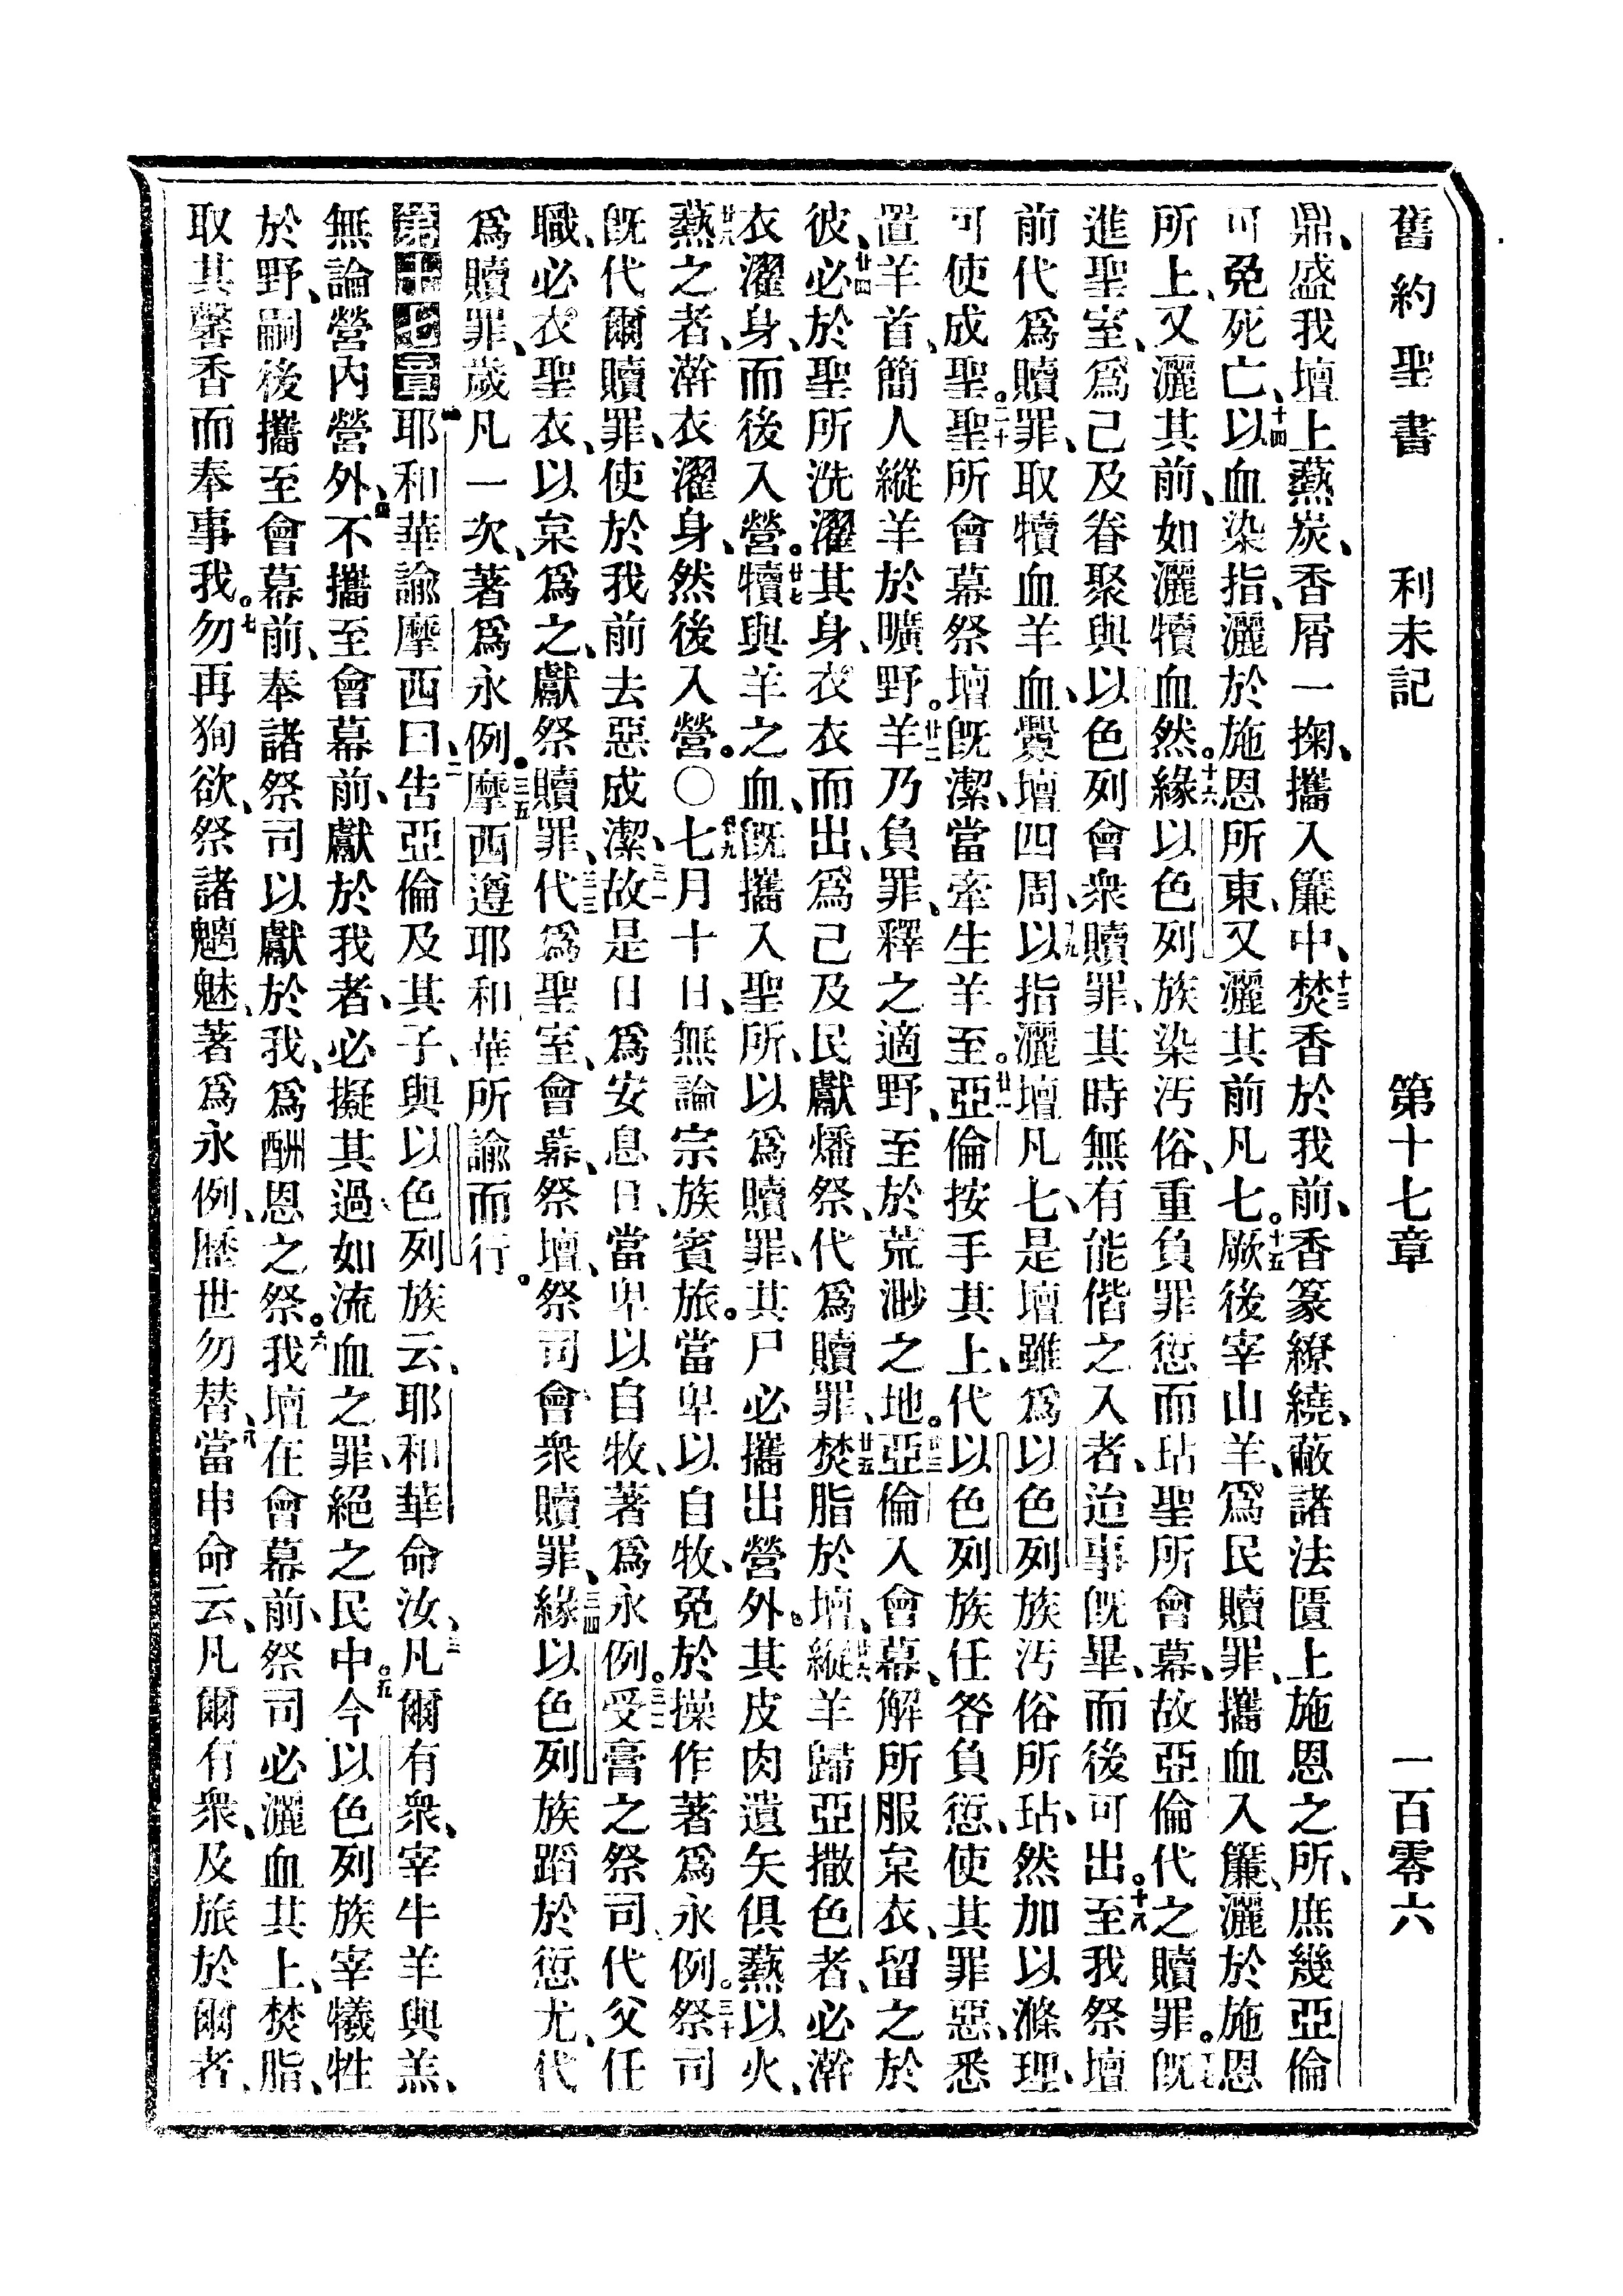 舊約聖書　利未記　第十七章　一百零六
鼎、盛我壇上爇炭、香屑一掬、攜入簾中、十三焚香於我前、香篆繚繞、蔽諸法匱上施恩之所、庶幾亞倫
可免死亡、十四以血染指、灑於施恩所東、又灑其前凡七。十五厥後宰山羊、爲民贖罪、攜血入簾、灑於施恩
所上、又灑其前、如灑犢血然。十六緣以色列族染汚俗、重負罪愆、而玷聖所會幕、故亞倫代之贖罪。十七旣
進聖室、爲己及眷聚與以色列會衆贖罪、其時無有能偕之入者、迨事旣畢、而後可出。十八至我祭壇
前代爲贖罪、取犢血羊血、釁壇四周、十九以指灑壇凡七、是壇雖爲以色列族汚俗所玷、然加以滌理、
可使成聖。二十聖所會幕祭壇旣潔、當牽生羊至。廿一亞倫按手其上、代以色列族任咎負愆、使其罪惡、悉
置羊首、簡人縱羊於曠野。廿二羊乃負罪、釋之適野、至於荒渺之地。廿三亞倫入會幕、解所服枲衣、留之於
彼、廿四必於聖所洗濯其身、衣衣而出、爲己及民獻燔祭、代爲贖罪、廿五焚脂於壇、廿六縱羊歸亞撒色者、必澣
衣濯身、而後入營。廿七犢與羊之血、旣攜入聖所、以爲贖罪、其尸必攜出營外、其皮肉遺矢俱爇以火、
廿八爇之者、澣衣濯身、然後入營。〇廿九七月十日、無論宗族賓旅。當卑以自牧、免於操作、著爲永例。三十祭司
旣代爾贖罪、使於我前去惡成潔、三一故是日爲安息日、當卑以自牧、著爲永例。三二受膏之祭司、代父任
職、必衣聖衣、以枲爲之、獻祭贖罪、三三代爲聖室、會幕、祭壇、祭司會衆贖罪、三四緣以色列族蹈於愆尤、代
爲贖罪、歲凡一次、著爲永例。三五摩西遵耶和華所諭而行。
第十七章　一耶和華諭摩西曰、二告亞倫及其子、與以色列族云、耶和華命汝、三凡爾有衆、宰牛羊與羔、
無論營內營外、四不攜至會幕前、獻於我者、必擬其過如流血之罪、絕之民中。五今以色列族宰犧牲
於野、嗣後攜至會幕前、奉諸祭司以獻於我、爲酬恩之祭。六我壇在會幕前、祭司必灑血其上、焚脂、
取其馨香而奉事我。七勿再狥欲、祭諸魑魅、著爲永例、歷世勿替、八當申命云、凡爾有衆、及旅於爾者、